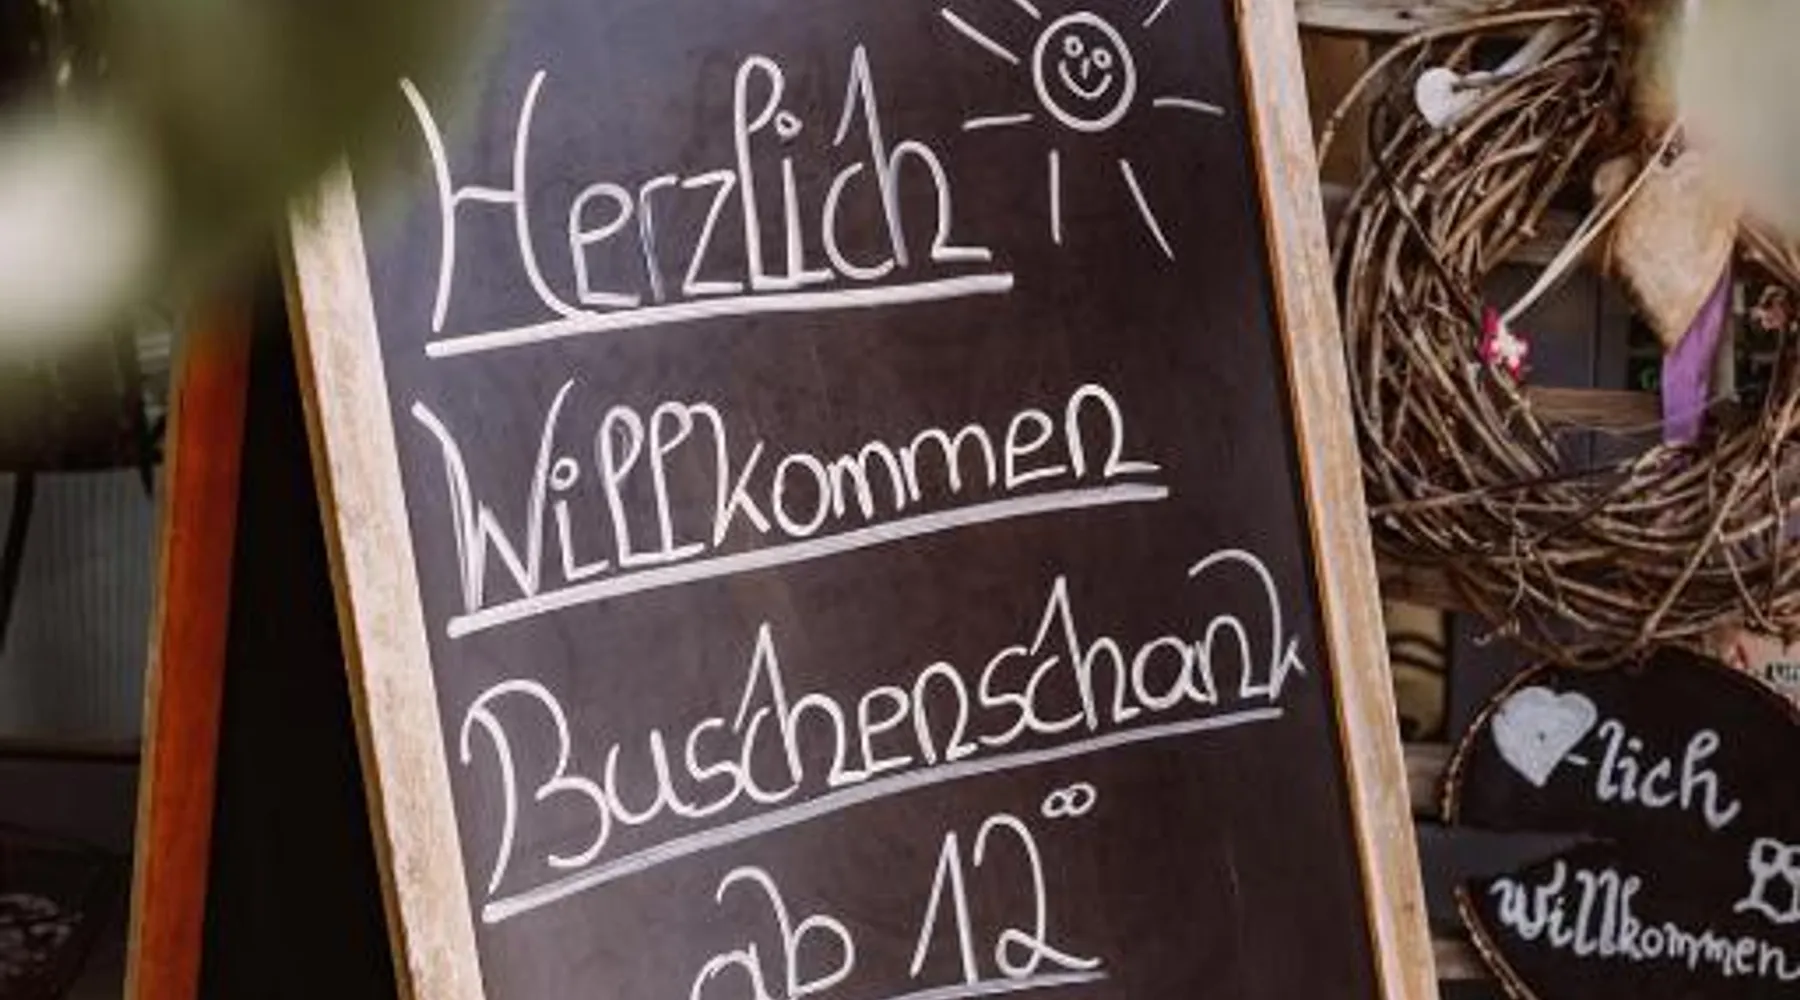 Herzlich
Willkommen
Buschenschank
ab 12⁰⁰
-lich
willkommen